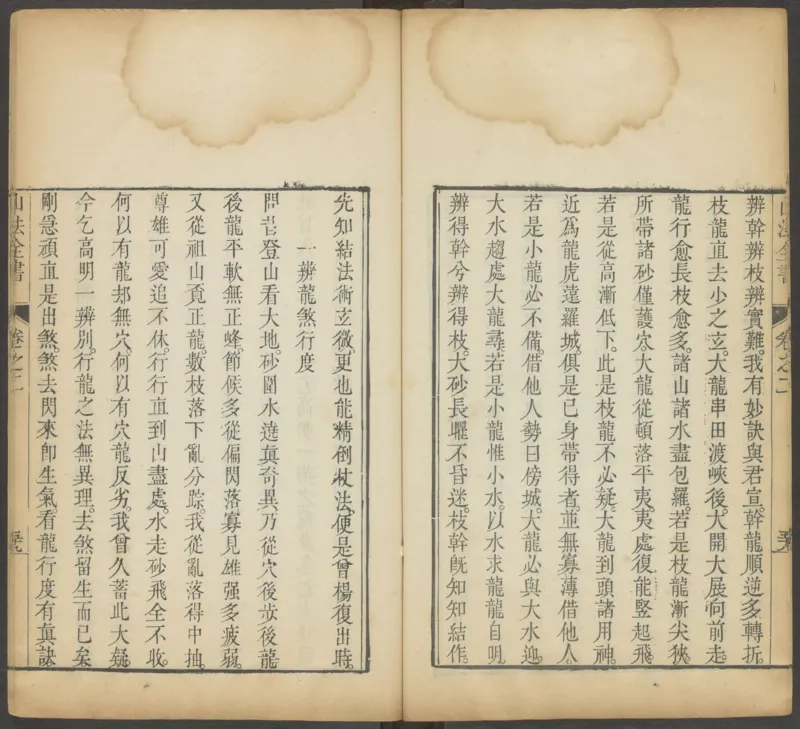 辨幹辨枝辨實難。我有妙訣與君宣。幹龍順逆多轉折。
枝龍直去少之玄。大龍串田渡峽後。大開大展向前走。
龍行愈長枝愈多。諸山諸水盡包羅。若是枝龍漸尖狹。
所帶諸砂僅護穴。大龍從頓落平夷。夷處復能竪起飛。
若是從高漸低下。此是枝龍不必疑。大龍到頭諸用神。
近爲龍虎遠羅城。俱是已身帶得者。並無寡薄借他人。
若是小龍必不備。借他人勢曰傍城。大龍必與大水迎。
大水趨處大龍尋。若是小龍惟小水。以水求龍龍自明。
辨得幹兮辨得枝。大砂長曜不昏迷。枝幹旣知知結作。
山法全書
卷之二
先知結法術玄微。更也能精倒杖法。便是曾楊復出時。
一辨龍煞行度
問君登山看大地。砂圍水遶眞奇異。乃從穴後妝後龍
後龍平軟無正峰。節候多從偏閃落。寡見雄强多疲弱。
又從祖山覓正龍。數枝落下亂分踪。我從亂落得中抽。
尊雄可愛追不休。行行直到山盡處。水走砂飛全不收。
何以有龍却無穴。何以有穴龍反劣。我曾久蓄此大疑。
今乞高明一辨別。行龍之法無異理。去煞留生而已矣
剛急頑直是出煞。煞去閃來卽生氣。看龍行度有眞訣
山法全書
卷之二